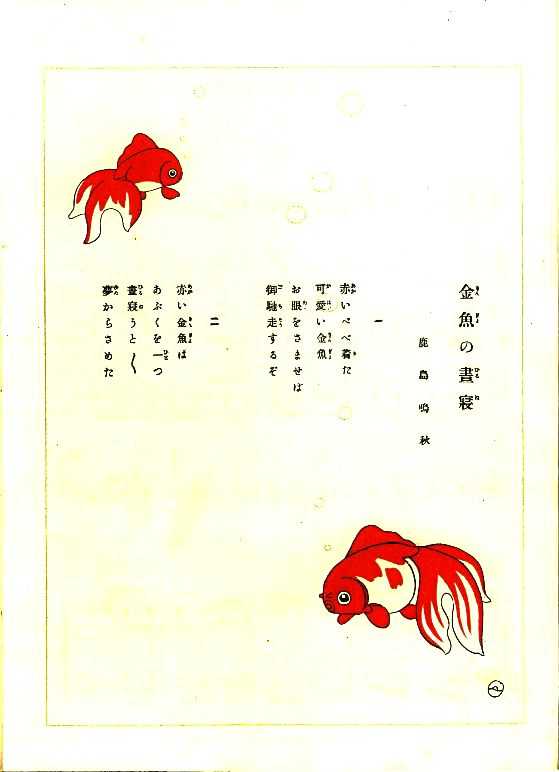 金魚の晝寢
鹿島鳴秋
一
赤いべべ着た
可愛い金魚
お眼をさませば
御馳走するぞ
二
赤い金魚は
あぶくを一つ
晝寢うと〱
夢からさめた